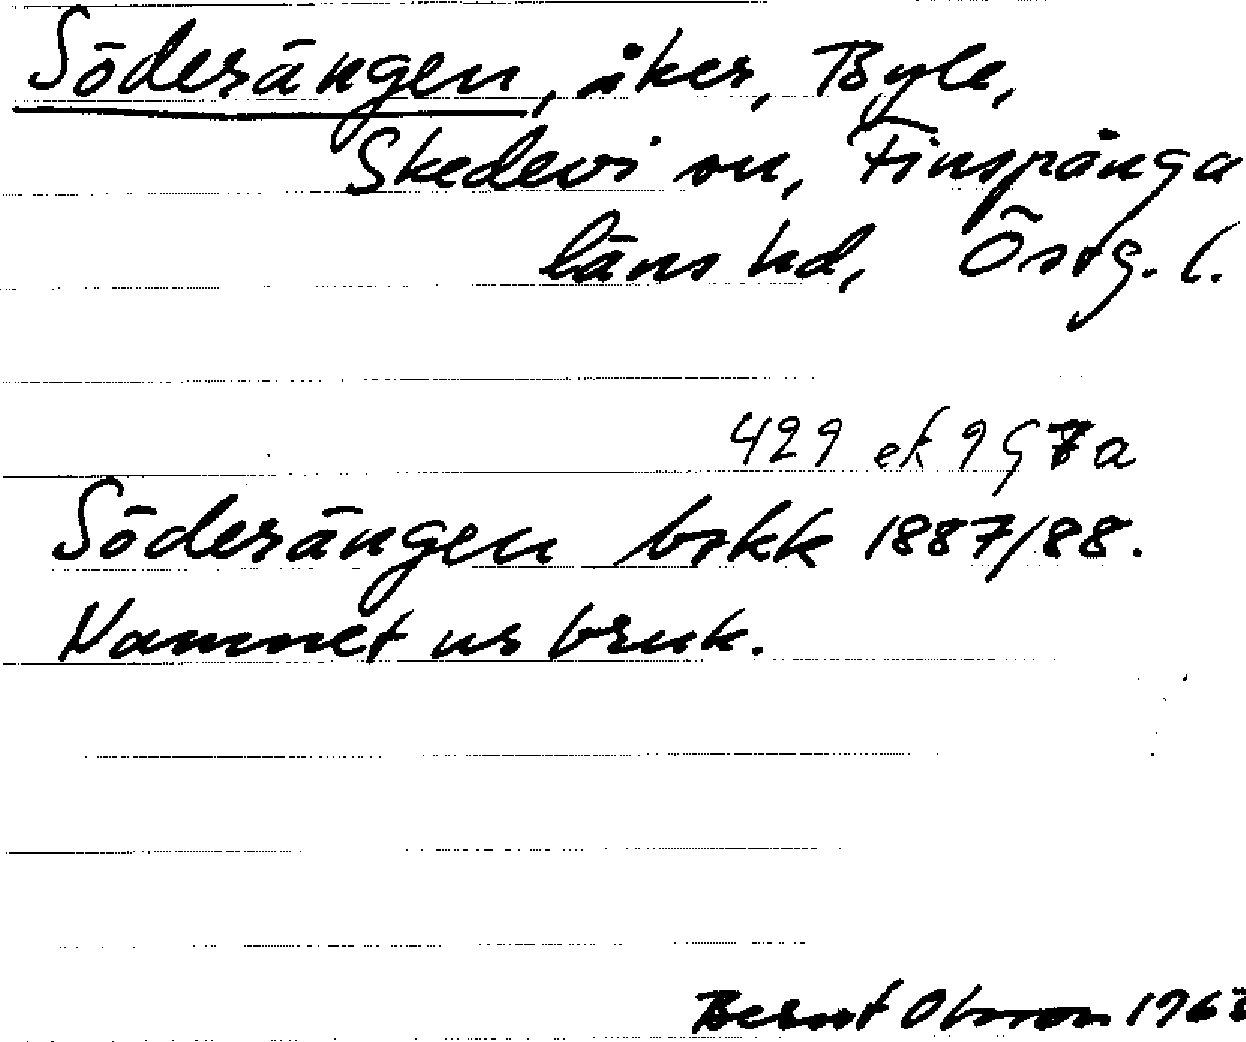 Söderängen, åker, Byle,
Skedevi sn, Finspånga
läns hd, Östg. l.
429 ek 9 G 7 a
Söderängen bskk 1887/88.
Namnet ur bruk.
Bernt Olsson 1963